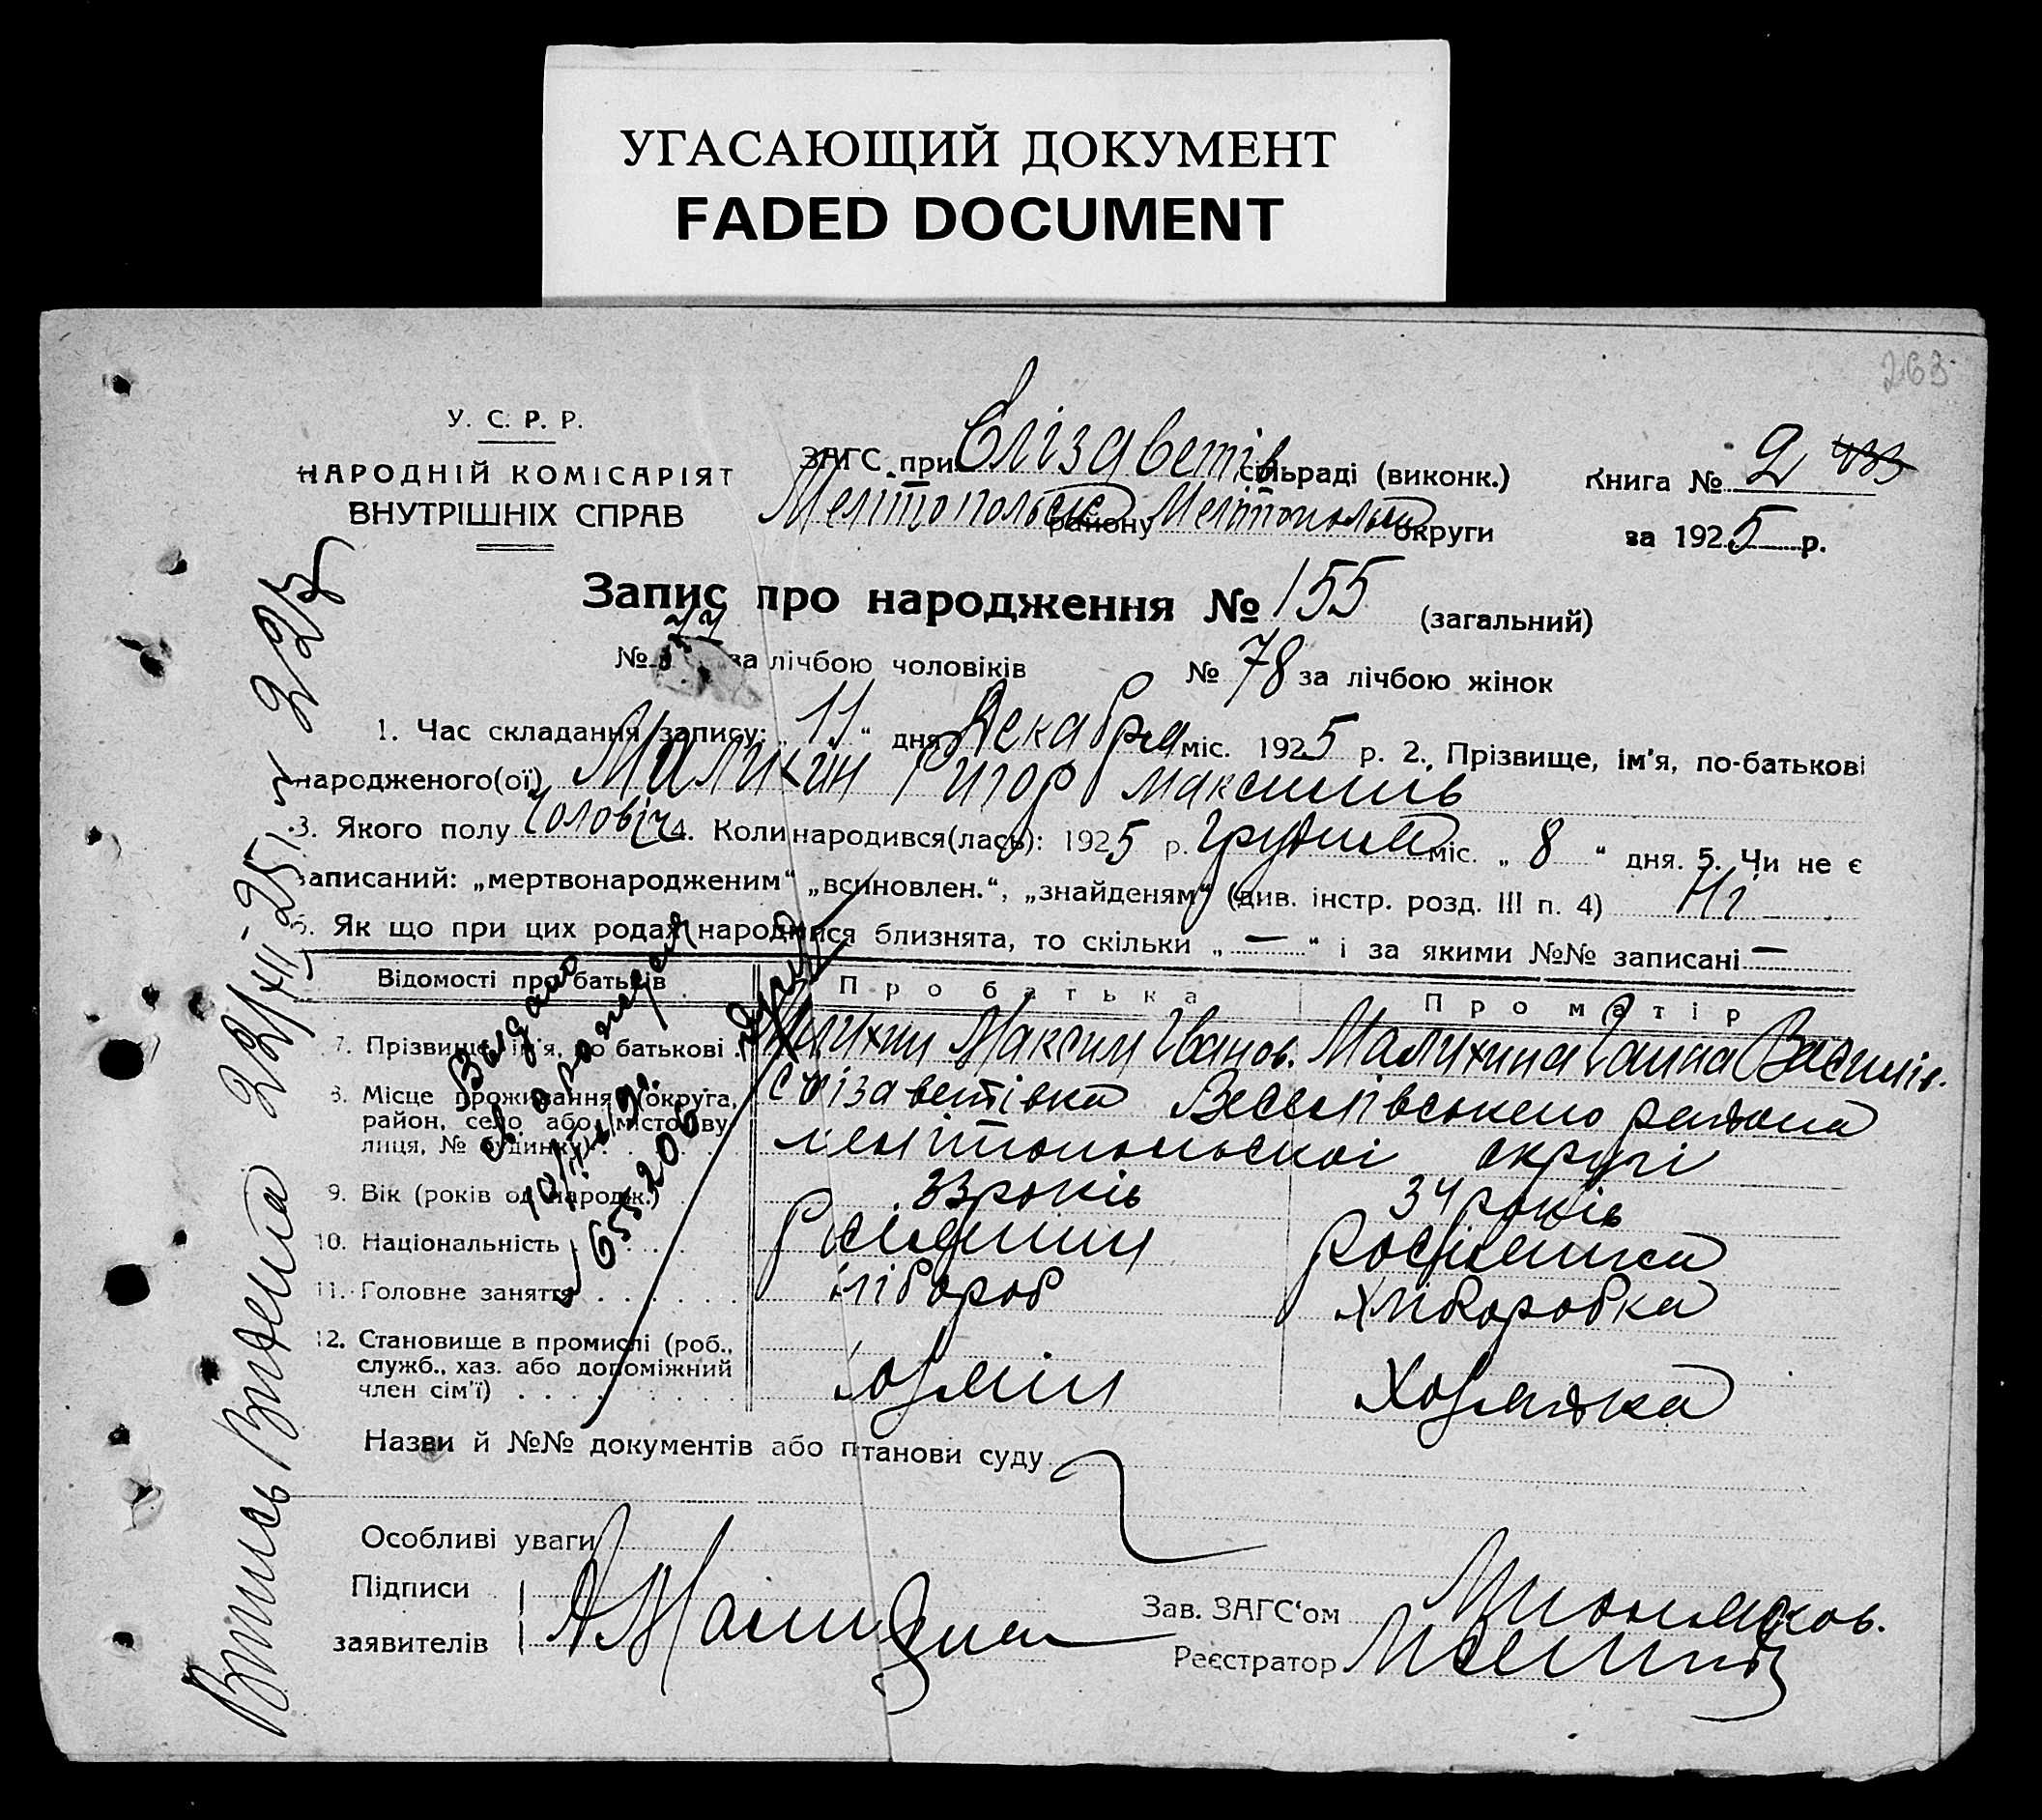 УГАСАЮЩИЙ ДОКУМЕНТ
FADED DOCUMENT
263
У. С. Р. Р.
НАРОДНІЙ КОМІСАРІЯТ
ВНУТРІШНІХ СПРАВ
ЗАГС при Єлізаветів сільраді (виконк.)
Мелітопольск району Мелітопольск округи
Книга № 2 433
за 1925 р.
Запис про народження № 155 (загальний)
№ 77 за лічбою чоловіків № 78 за лічбою жінок
1. Час складання запису: „ 11 “ дня Декабря міс. 1925 р. 2. Прізвище, ім'я, по-батькові
народженого(ої) Малихин Григор Максимів
3. Якого полу Чоловіч 4. Коли народився(лась): 1925 р. Грудня міс. „ 8 “ дня. 5. Чи не є
записаний: „мертвонародженим“ „всиновлен.“, „знайденям“ (див. інстр. розд. III п. 4) Ні
6. Як що при цих родах народился близнята, то скільки „ — “ і за якими №№ записані —
Відомості про батьків Про батька Про матір
7. Прізвище, ім'я, по батькові Малихин Максим Іванов. Малихина Ганна Василів.
8. Місце проживання (округа, район, село або місто, вулиця, № будинку) Єлізаветівка Веселівського района
мелітопольскоі округі
9. Вік (років од народж.) 33 років 34 років
10. Національність Росіянин Росіянка
11. Головне заняття хлібороб Хліборобка
12. Становище в промислі (роб.,
служб., хаз. або допоміжний
член сім'ї) Хозяїн Хозяйка
Назви й №№ документів або птанови суду
Особливі уваги
Підписи
заявителів
Зав. ЗАГС'ом
Реєстратор
Выдано
св. о рожден
655206
Випись Видена 22/XII-25